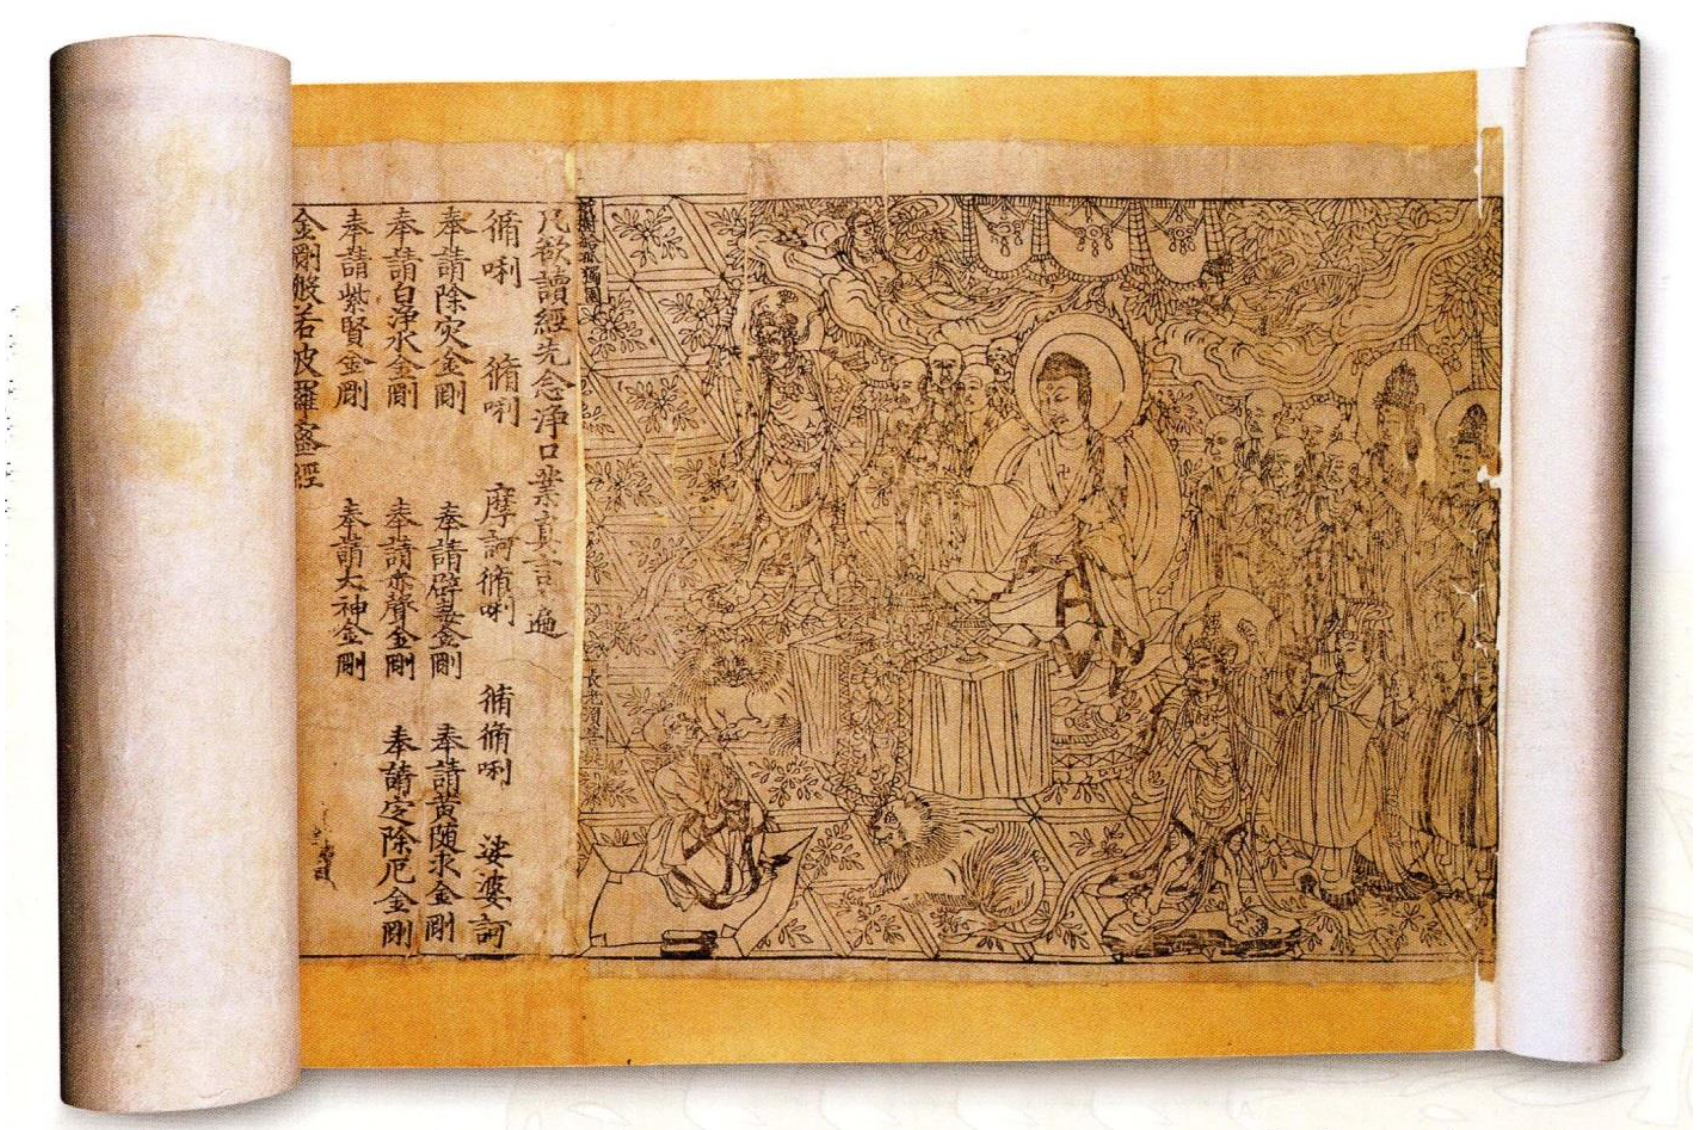 祇樹給孤獨園
長老須菩提
凡欲讀經先念浄口業真言一遍
脩唎 脩唎 摩訶脩唎 脩脩唎 娑婆訶
奉請除灾金剛 奉請辟毒金剛 奉請黄随求金剛
奉請白浄水金剛 奉請赤聲金剛 奉請定除厄金剛
奉請紫賢金剛 奉請大神金剛
金剛般若波羅蜜經